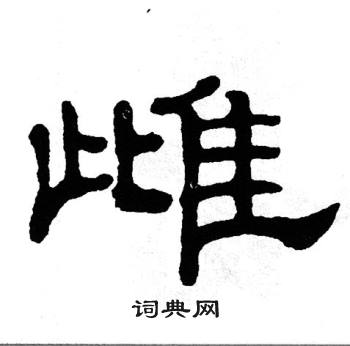 雌
词典网